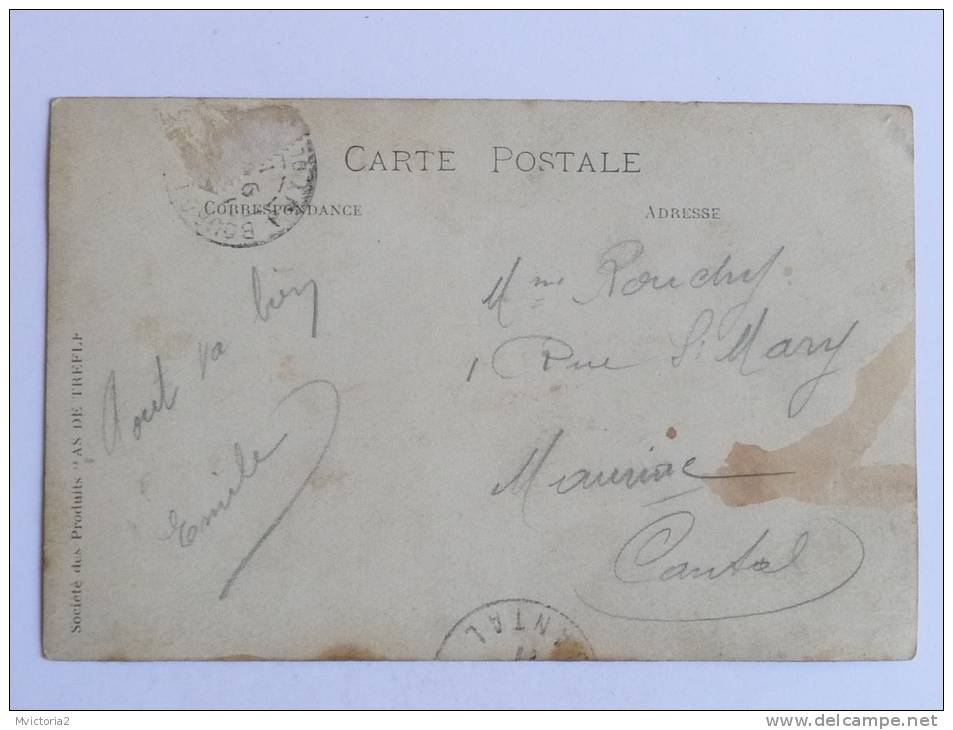 CARTE POSTALE
CORRESPONDANCE
ADRESSE
Tout va bien
Emile
Mme Rouchy
1 Rue St Mary
Mauriac
Cantal
Société des Produits "AS DE TREFLE
ANTAL
Mvictoria2
www.delcampe.net